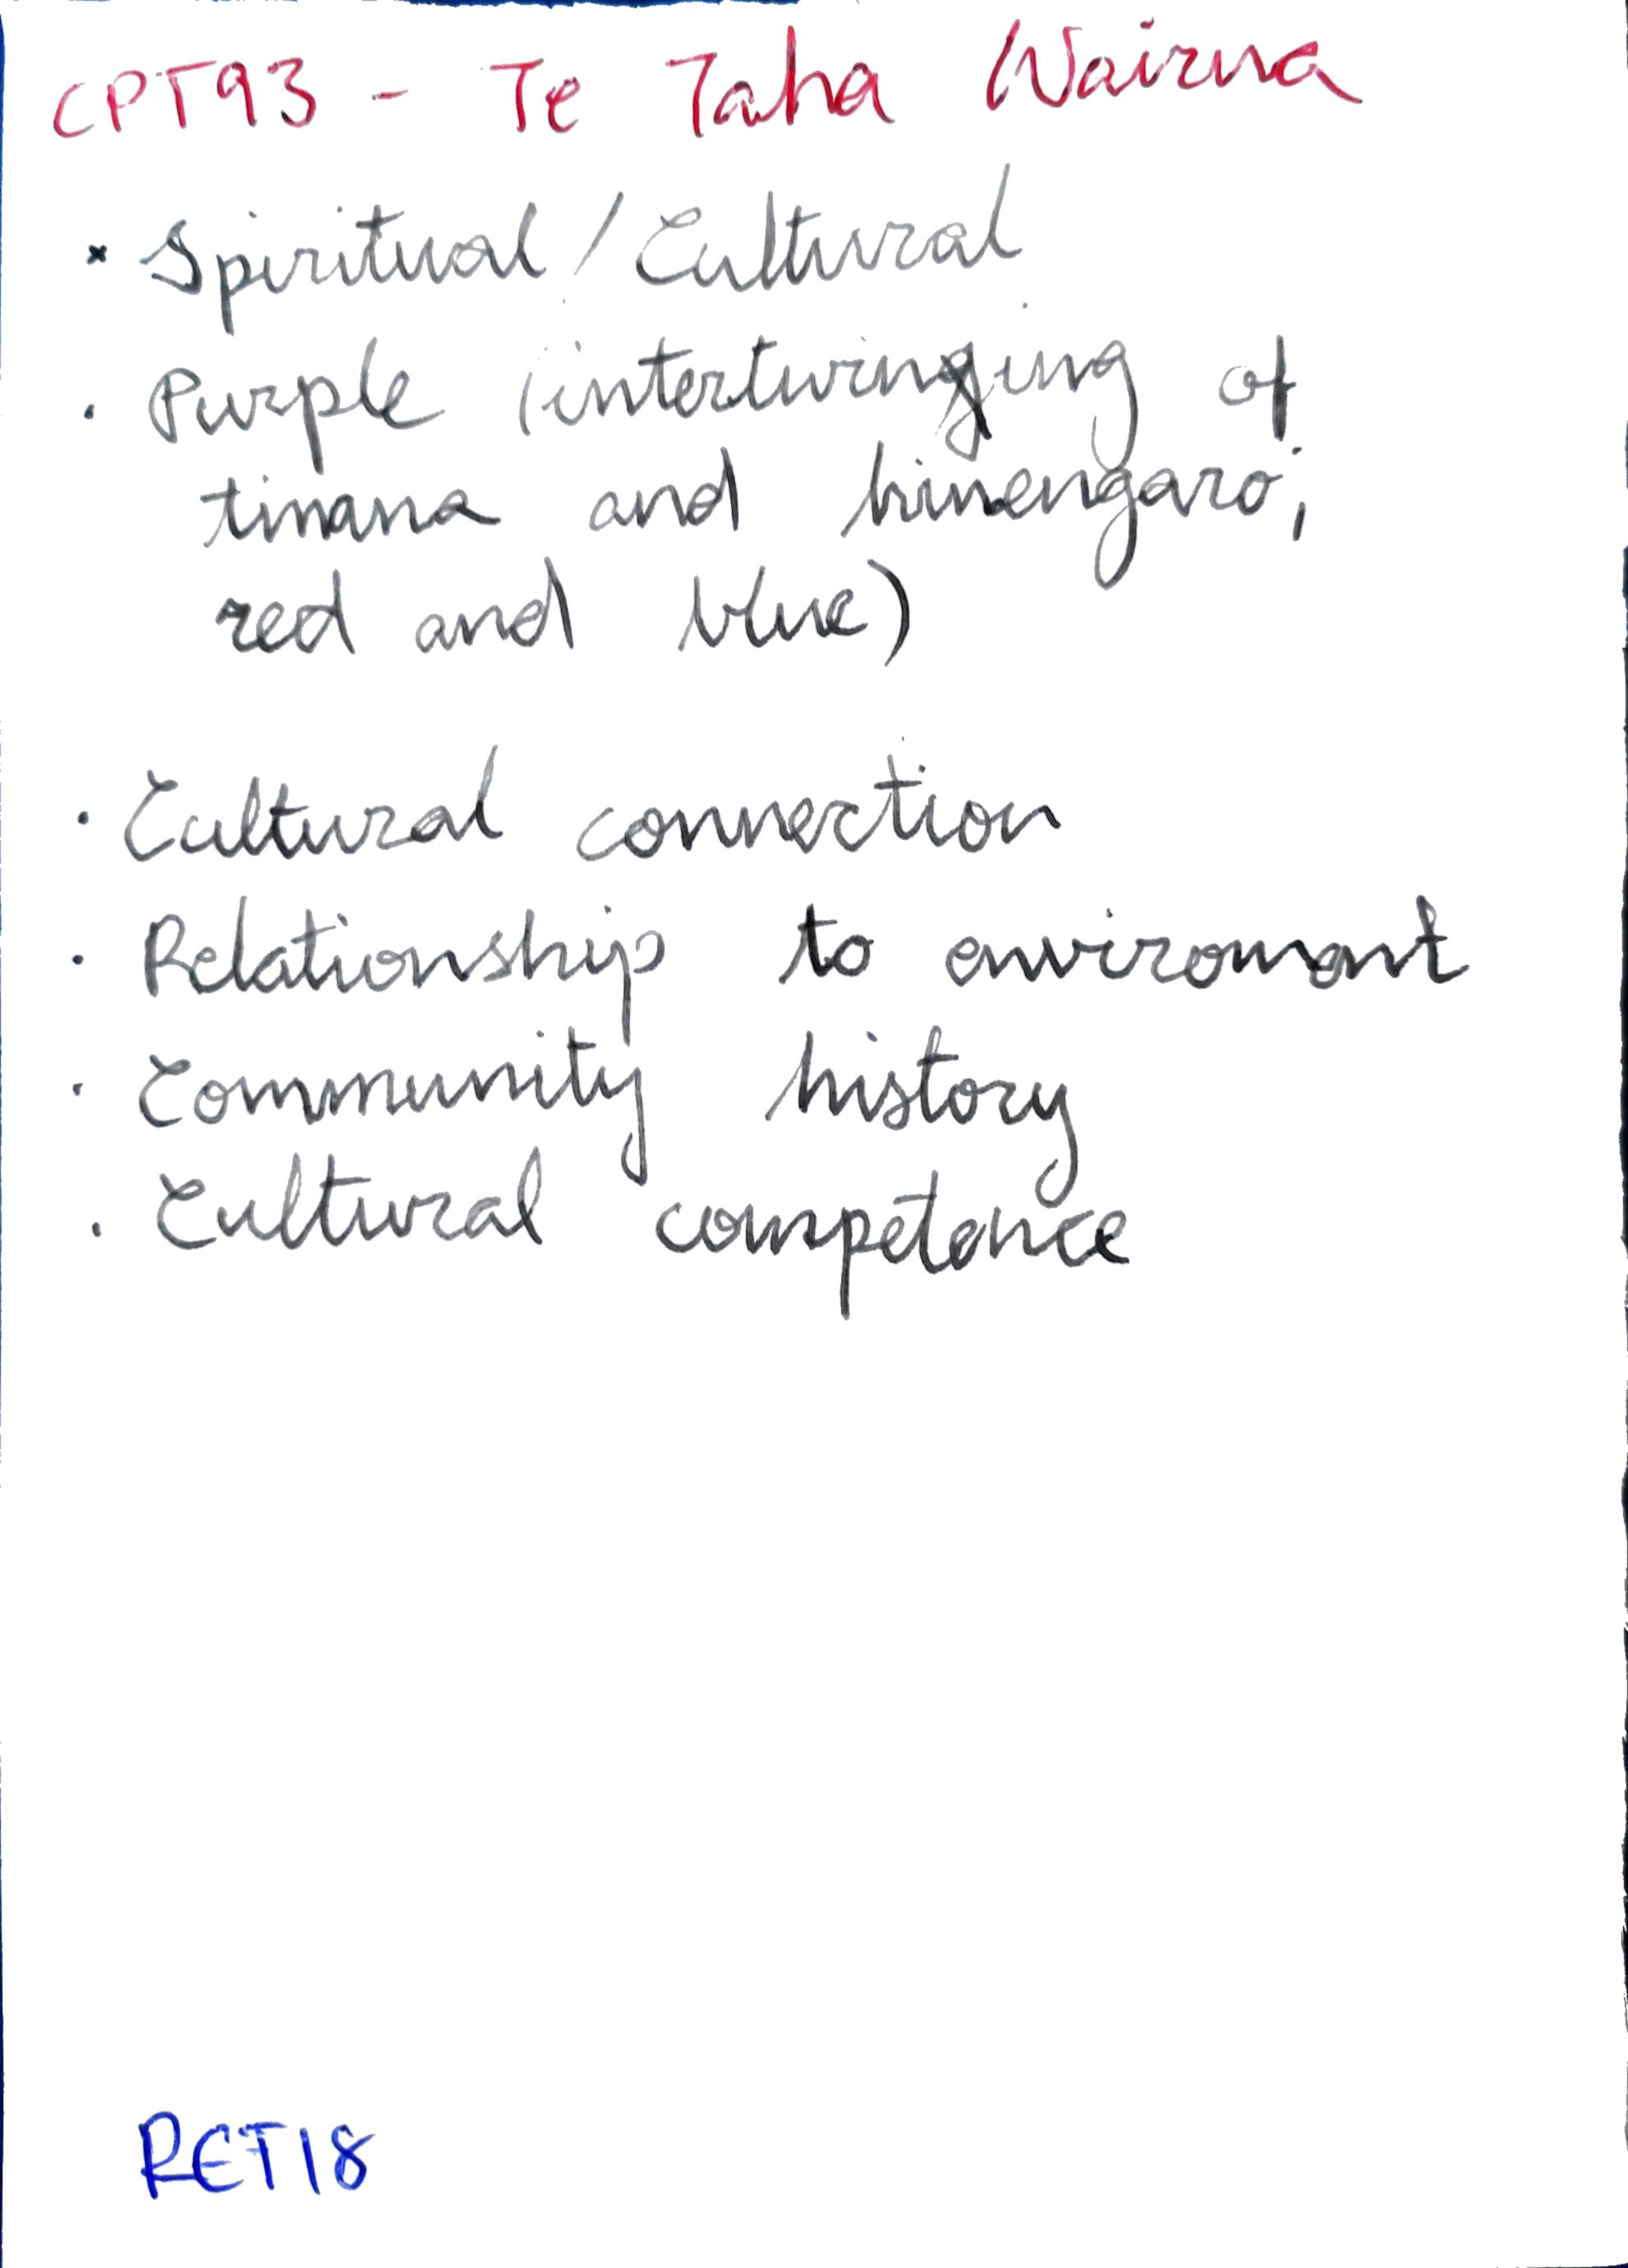 CPT93 - Te Taha Wairua
× Spiritual / Cultural
· Purple (intertwinging of
tinana and hinengaro;
red and blue)
· Cultural connection
· Relationship to enviroment
· Community history
· Cultural competence
RET18